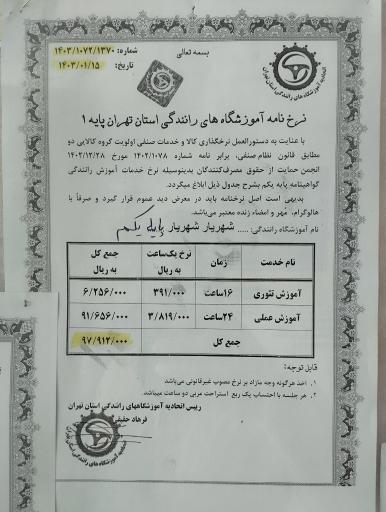 بسمه تعالی
شماره: ۱۴۰۳/۱۰۷۲/۱۳۷۰
تاریخ: ۱۴۰۳/۰۱/۱۵
اتحادیه آموزشگاه های رانندگی استان تهران
نرخ نامه آموزشگاه های رانندگی استان تهران پایه ۱
با عنایت به دستورالعمل نرخگذاری کالا و خدمات صنفی اولویت گروه کالایی دو
مطابق قانون نظام صنفی، برابر نامه شماره ۱۴۰۲/۱۰۷۸ مورخ ۱۴۰۲/۱۲/۲۸
انجمن حمایت از حقوق مصرف‌کنندگان بدینوسیله نرخ خدمات آموزش رانندگی
گواهینامه پایه یکم بشرح جدول ذیل ابلاغ میگردد.
بدیهی است اصل نرخنامه باید در معرض دید عموم قرار گیرد و صرفا با
هالوگرام، مُهر و امضاء زنده معتبر می‌باشد.
نام آموزشگاه رانندگی: ..... شهریار شهریار پایه یکم
نام خدمت زمان نرخ یک‌ساعت به ریال جمع کل به ریال
آموزش تئوری ۱۶ساعت ۳۹۱/۰۰۰ ۶/۲۵۶/۰۰۰
آموزش عملی ۲۴ساعت ۳/۸۱۹/۰۰۰ ۹۱/۶۵۶/۰۰۰
جمع کل ۹۷/۹۱۲/۰۰۰
قابل توجه:
۱. اخذ هرگونه وجه مازاد بر نرخ مصوب غیرقانونی می‌باشد
۲. هر جلسه با احتساب یک ربع استراحت مربی دو ساعت میباشد
رییس اتحادیه آموزشگاههای رانندگی استان تهران
فرهاد
اتحادیه آموزشگاه های رانندگی استان تهران